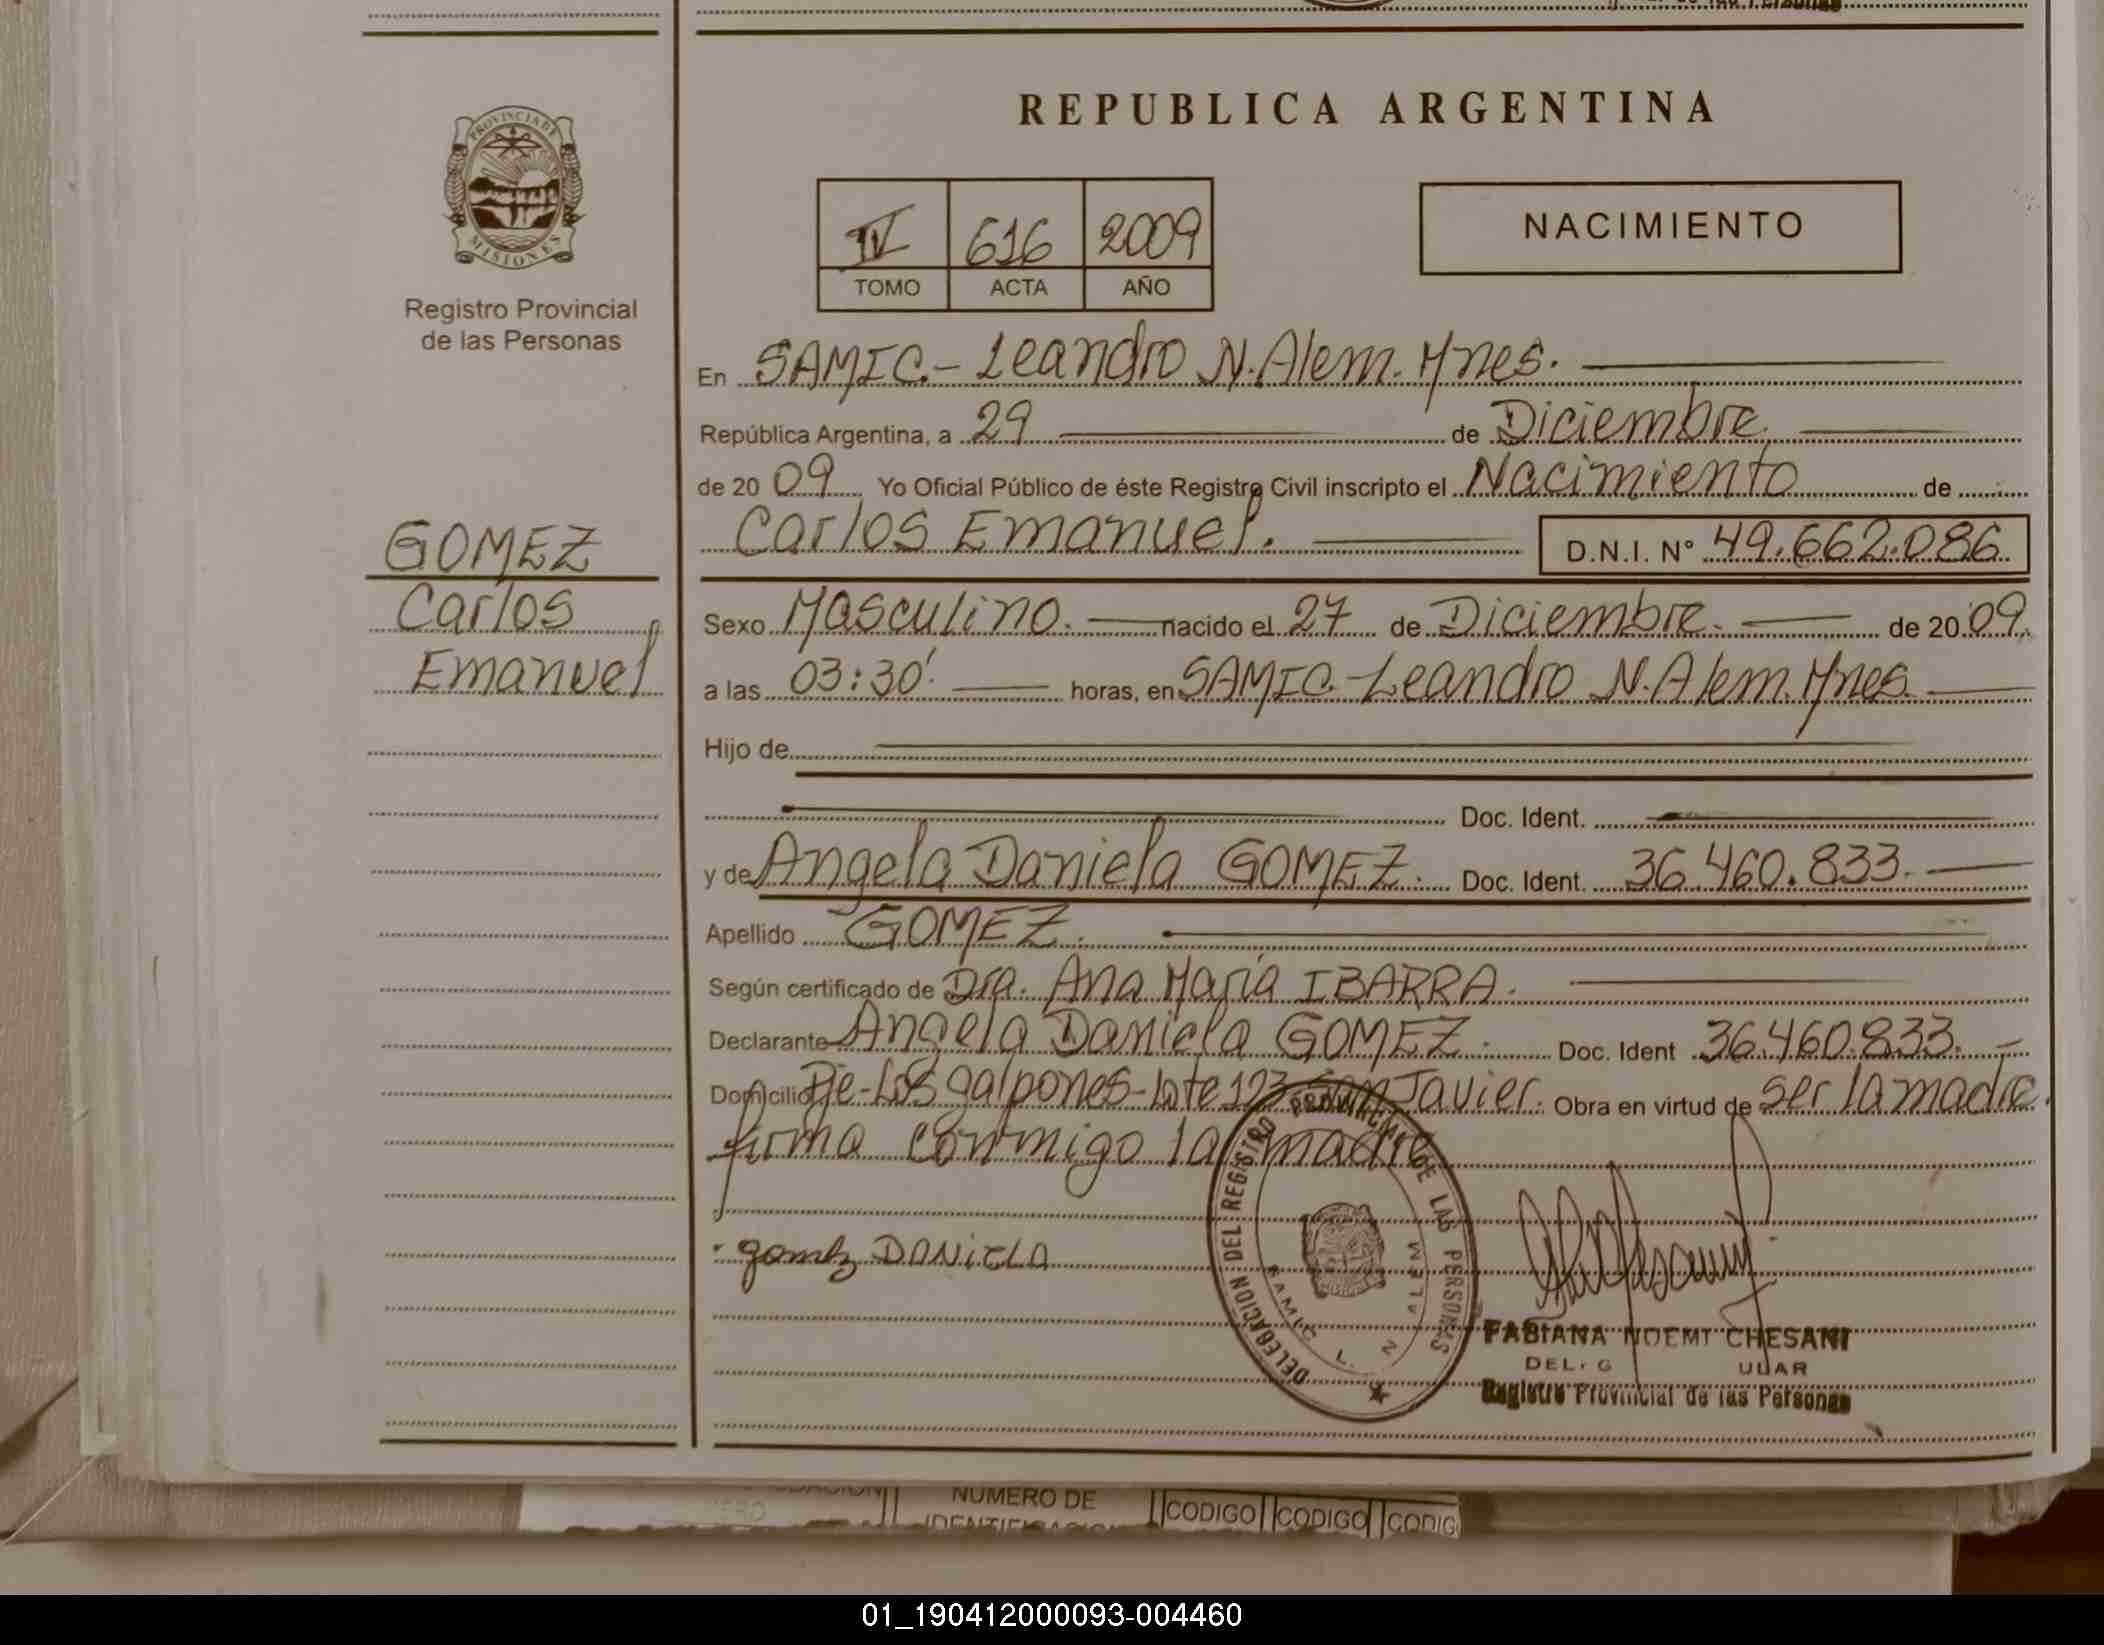 REPUBLICA ARGENTINA
PROVINCIA DE
MISIONES
Registro Provincial
de las Personas
IV 616 2009
TOMO ACTA AÑO
NACIMIENTO
En SAMIC.- Leandro N. Alem. Mnes.
República Argentina, a 29 de Diciembre
de 20 09 Yo Oficial Público de éste Registro Civil inscripto el Nacimiento de
GOMEZ
Carlos
Emanuel
Carlos Emanuel. D.N.I. Nº 49.662.086
Sexo Masculino. nacido el 27 de Diciembre. de 20 09.
a las 03:30'. horas, en SAMIC.-Leandro N. Alem. Mnes.
Hijo de
Doc. Ident.
y de Angela Daniela GOMEZ. Doc. Ident. 36.460.833.
Apellido GOMEZ.
Según certificado de Dra. Ana María IBARRA.
Declarante Angela Daniela GOMEZ. Doc. Ident 36.460.833.
Domicilio Pje-Los galpones-Lote 123 San Javier. Obra en virtud de ser la madre.
firma conmigo la madre
gomez DANIELA
DELEGACION DEL REGISTRO PROVINCIAL DE LAS PERSONAS
SAMIC L. N ALEM
FABIANA NOEMI CHESANI
Registro Provincial de las Personas
NUMERO DE
CODIGO CODIGO
01_190412000093-004460